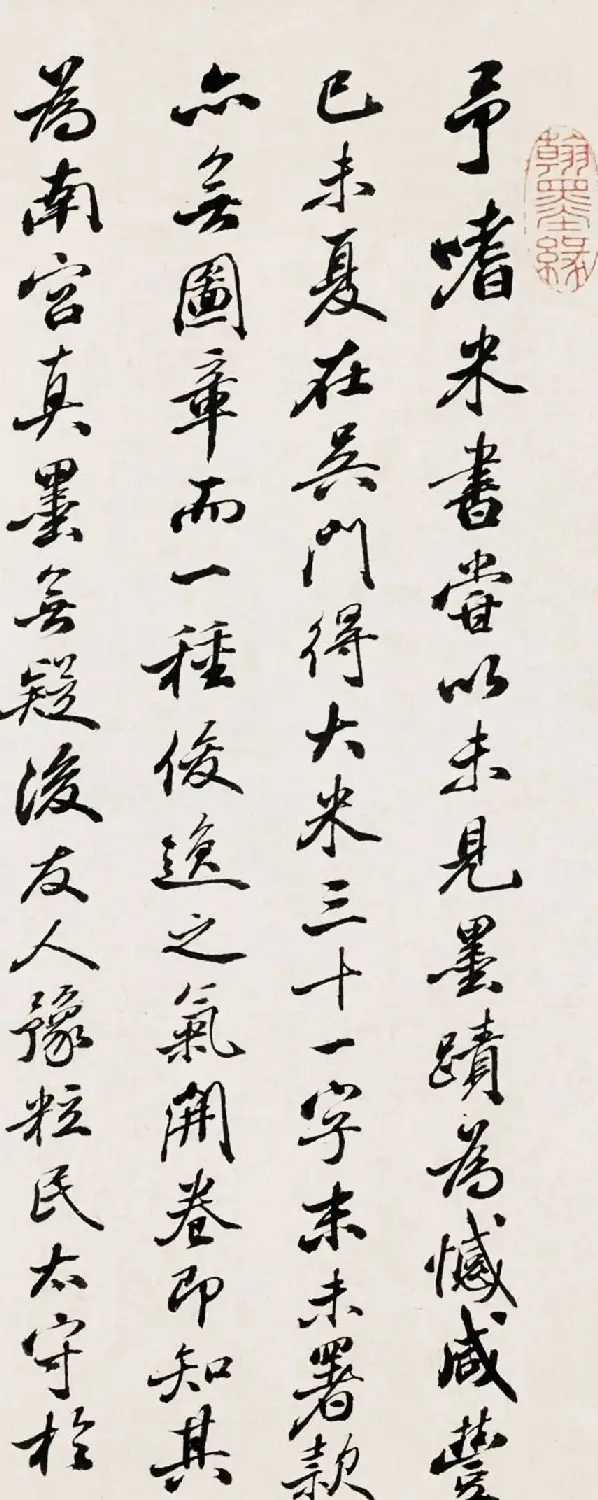 翰墨緣
予嗜米書嘗以未見墨蹟為憾咸豐
已未夏在吳門得大米三十一字末未署款
亦無圖章而一種俊逸之氣開卷即知其
為南宮真墨無疑後友人豫粒民太守於